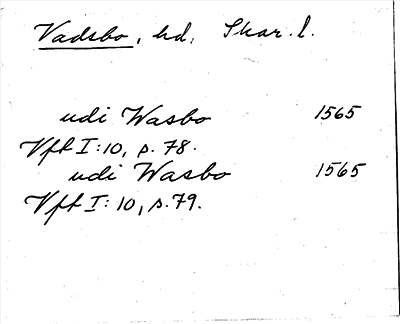 Vadsbo, hd, Skar. l.
udi Wasbo 1565
Vft I:10, s. 78.
udi Wasbo 1565
Vft I:10, s. 79.